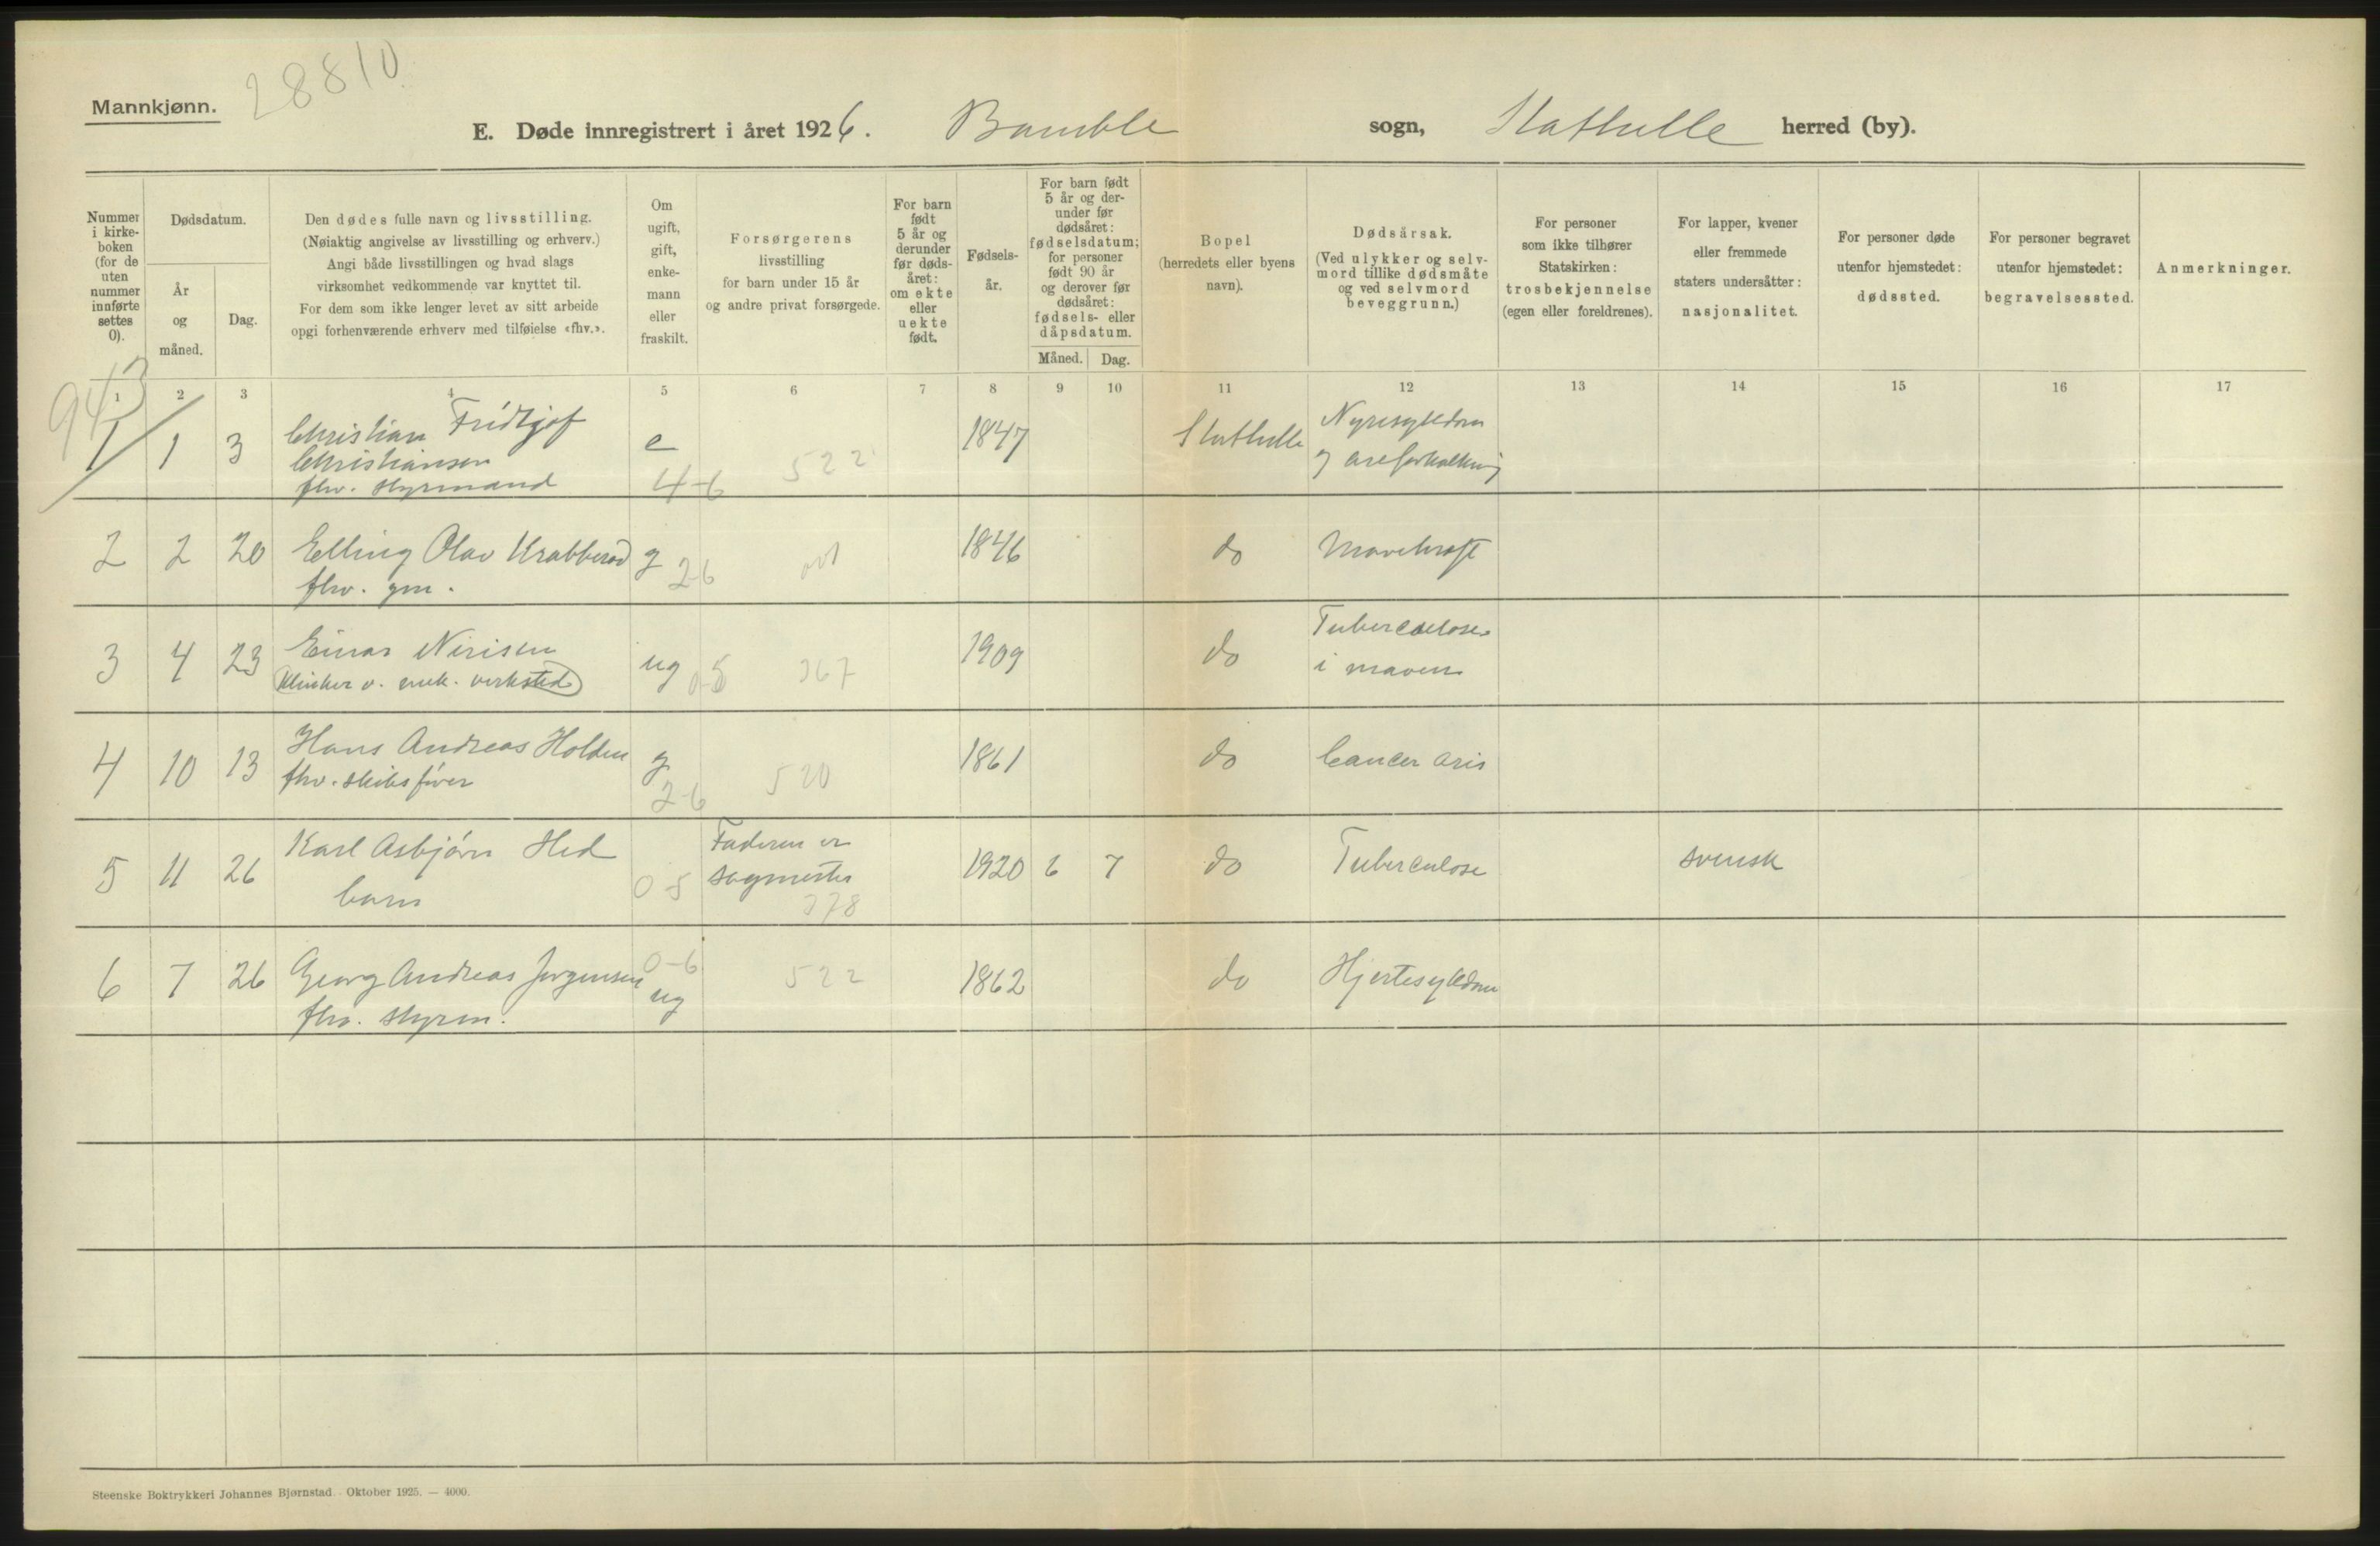 28810
Mannkjønn.
E. Døde innregistrert i året 1926. Bamble sogn, Stathelle herred (by).
Nummer i kirke-boken (for de uten nummer innførte settes 0).
Dødsdatum.
År og måned.
Dag.
Den dødes fulle navn og livsstilling.
(Nøiaktig angivelse av livsstilling og erhverv.)
Angi både livsstillingen og hvad slags
virksomhet vedkommende var knyttet til.
For dem som ikke lenger levet av sitt arbeide
opgi forhenværende erhverv med tilføielse «fhv.».
Om ugift, gift, enke-mann eller fraskilt.
Forsørgerens
livsstilling
for barn under 15 år
og andre privat forsørgede.
For barn født 5 år og derunder før døds-året: om ekte eller uekte født.
Fødsels-år.
For barn født 5 år og der-under før dødsåret: fødselsdatum; for personer født 90 år og derover før dødsåret: fødsels- eller dåpsdatum.
Måned.
Dag.
Bopel
(herredets eller byens
navn).
Dødsårsak.
(Ved ulykker og selv-
mord tillike dødsmåte
og ved selvmord
beveggrunn.)
For personer
som ikke tilhører
Statskirken:
trosbekjennelse
(egen eller foreldrenes).
For lapper, kvener
eller fremmede
staters undersåtter:
nasjonalitet.
For personer døde
utenfor hjemstedet:
dødssted.
For personer begravet
utenfor hjemstedet:
begravelsessted.
Anmerkninger.
1 2 3 4 5 6 7 8 9 10 11 12 13 14 15 16 17
943
1 1 3 Christian Fridtjof e 1847 Stathelle Nyresykdom
Christiansen og areforkalkning
fhv. styrmand 4-6 522
2 2 20 Elling Olav Krabberød g 1846 do Mavekræft
fhv. gm. 2-6
3 4 23 Einar Nirisen ug 1909 do Tuberculose
Klinker v. mek. verksted 0-5 367 i maven
4 10 13 Hans Andreas Holden g 1861 do Cancer oris
fhv. skibsfører 2-6 520
5 11 26 Karl Asbjørn Hed Faderen er 1920 6 7 do Tuberculose svensk
barn 0-5 sagmester
378
6 7 26 Georg Andreas Jørgensen 0-6 522 1862 do Hjertesykdom
fhv. styrm. ug
Steenske Boktrykkeri Johannes Bjørnstad. Oktober 1925. — 4000.